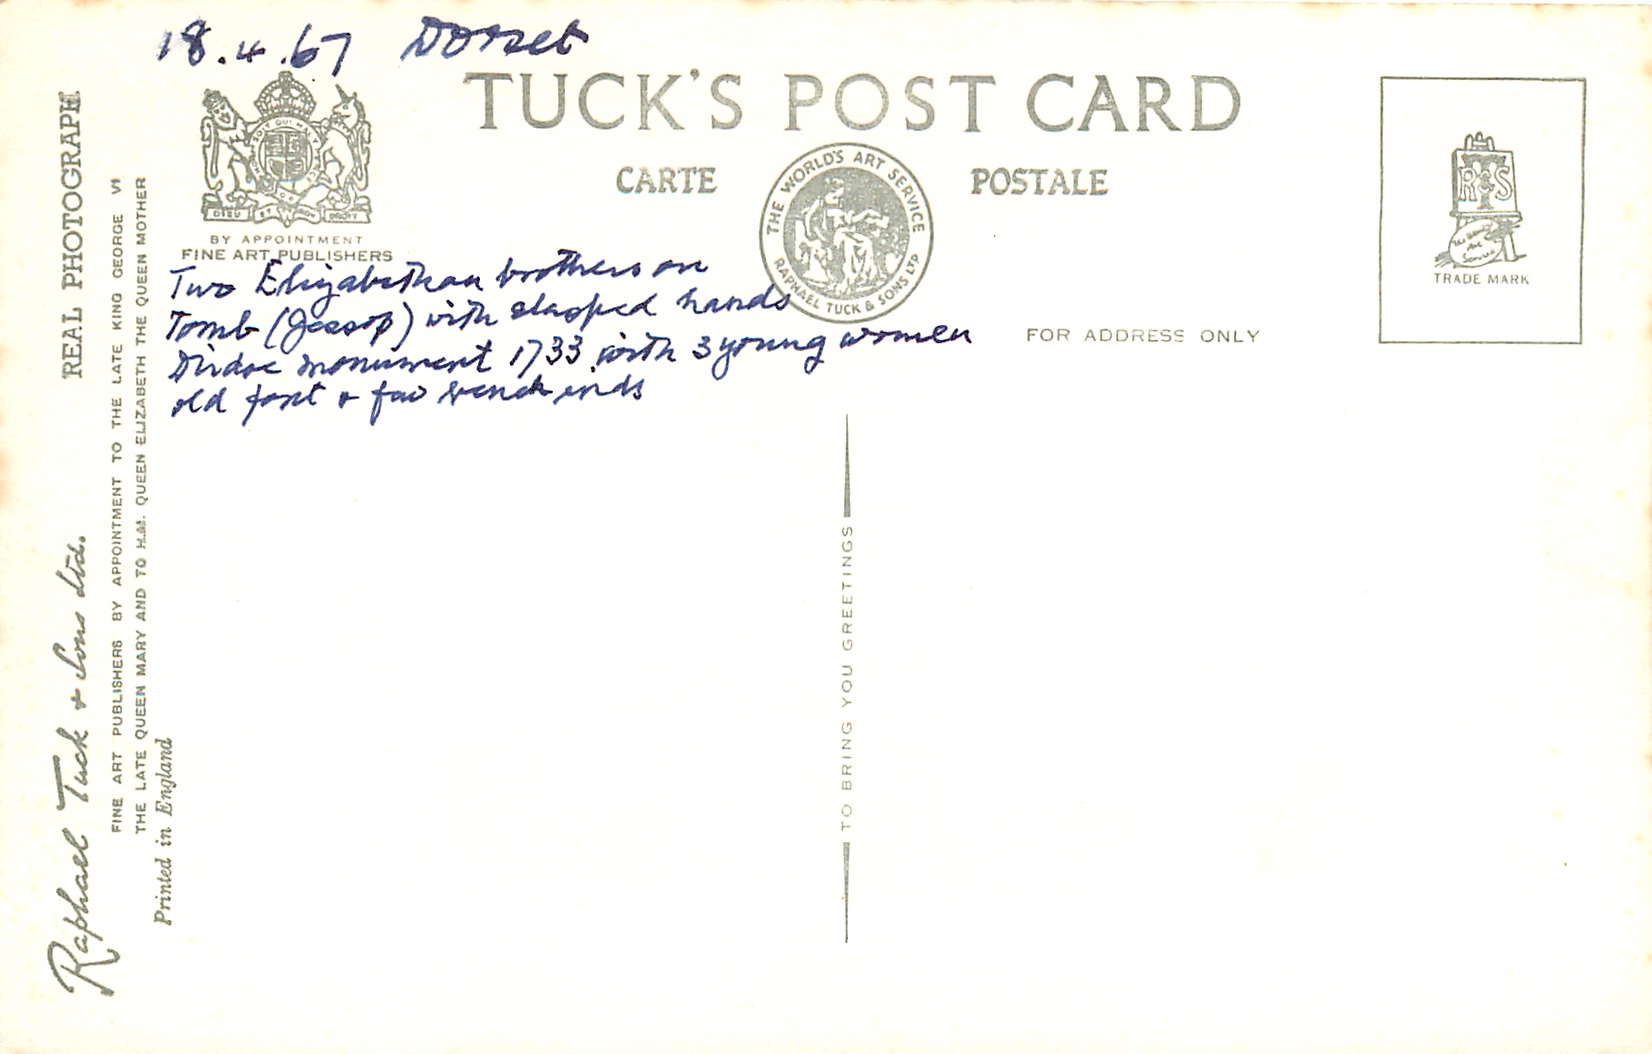 18.4.67 Dorset
TUCK'S POST CARD
CARTE POSTALE
THE WORLD'S ART SERVICE
RAPHAEL TUCK & SONS LTD
DIEU ET MON DROIT
BY APPOINTMENT
FINE ART PUBLISHERS
Two Elizabethan brothers on
Tomb (Jessop) with clasped hands
monument 1733 with 3 young women
old font & few bench ends
FOR ADDRESS ONLY
TRADE MARK
REAL PHOTOGRAPH
Raphael Tuck & Sons Ltd.
FINE ART PUBLISHERS BY APPOINTMENT TO THE LATE KING GEORGE VI
THE LATE QUEEN MARY AND TO H.M. QUEEN ELIZABETH THE QUEEN MOTHER
Printed in England
TO BRING YOU GREETINGS